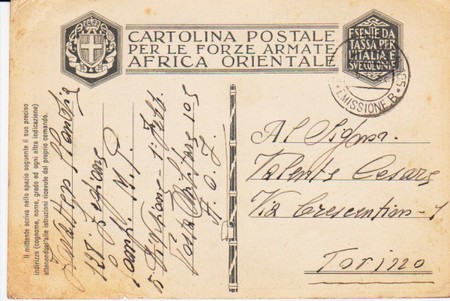 CARTOLINA POSTALE
PER LE FORZE ARMATE
AFRICA ORIENTALE
ESENTE DA
TASSA PER
L'ITALIA E
SVE COLONIE
EMISSIONE B
Il mittente scriva nello spazio seguente il suo preciso
indirizzo (cognome, nome, grado ed ogni altra indicazione)
attenendosi alle istruzioni ricevute dal proprio comando.
128° Legione
Posta Militare 105
A. O. I.
Al Signor
Valente Cesare
Via Crescentino - 1
Torino